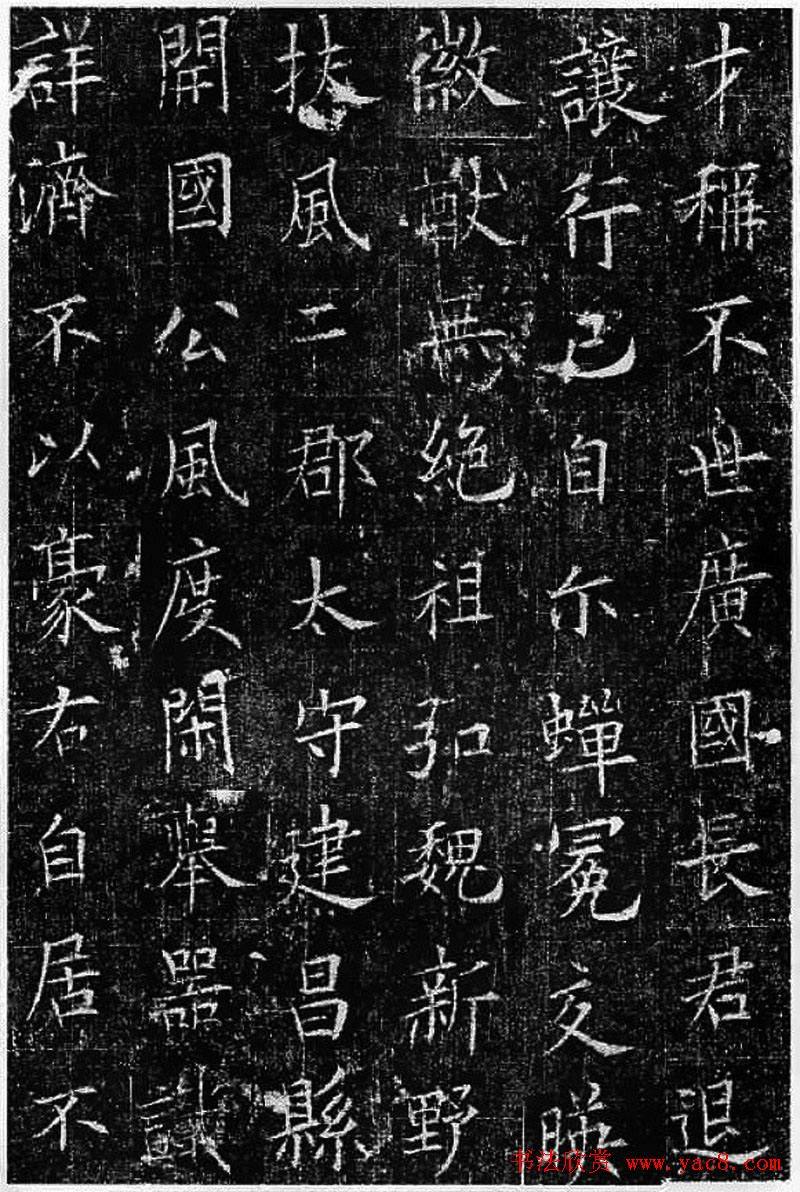 才稱不世廣國長君退
讓行己自尒蟬冕交暎
徽猷無絕祖弘魏新野
扶風二郡太守建昌縣
開國公風度閑舉器識
詳濟不以豪右自居不
书法欣赏 www.yac8.com